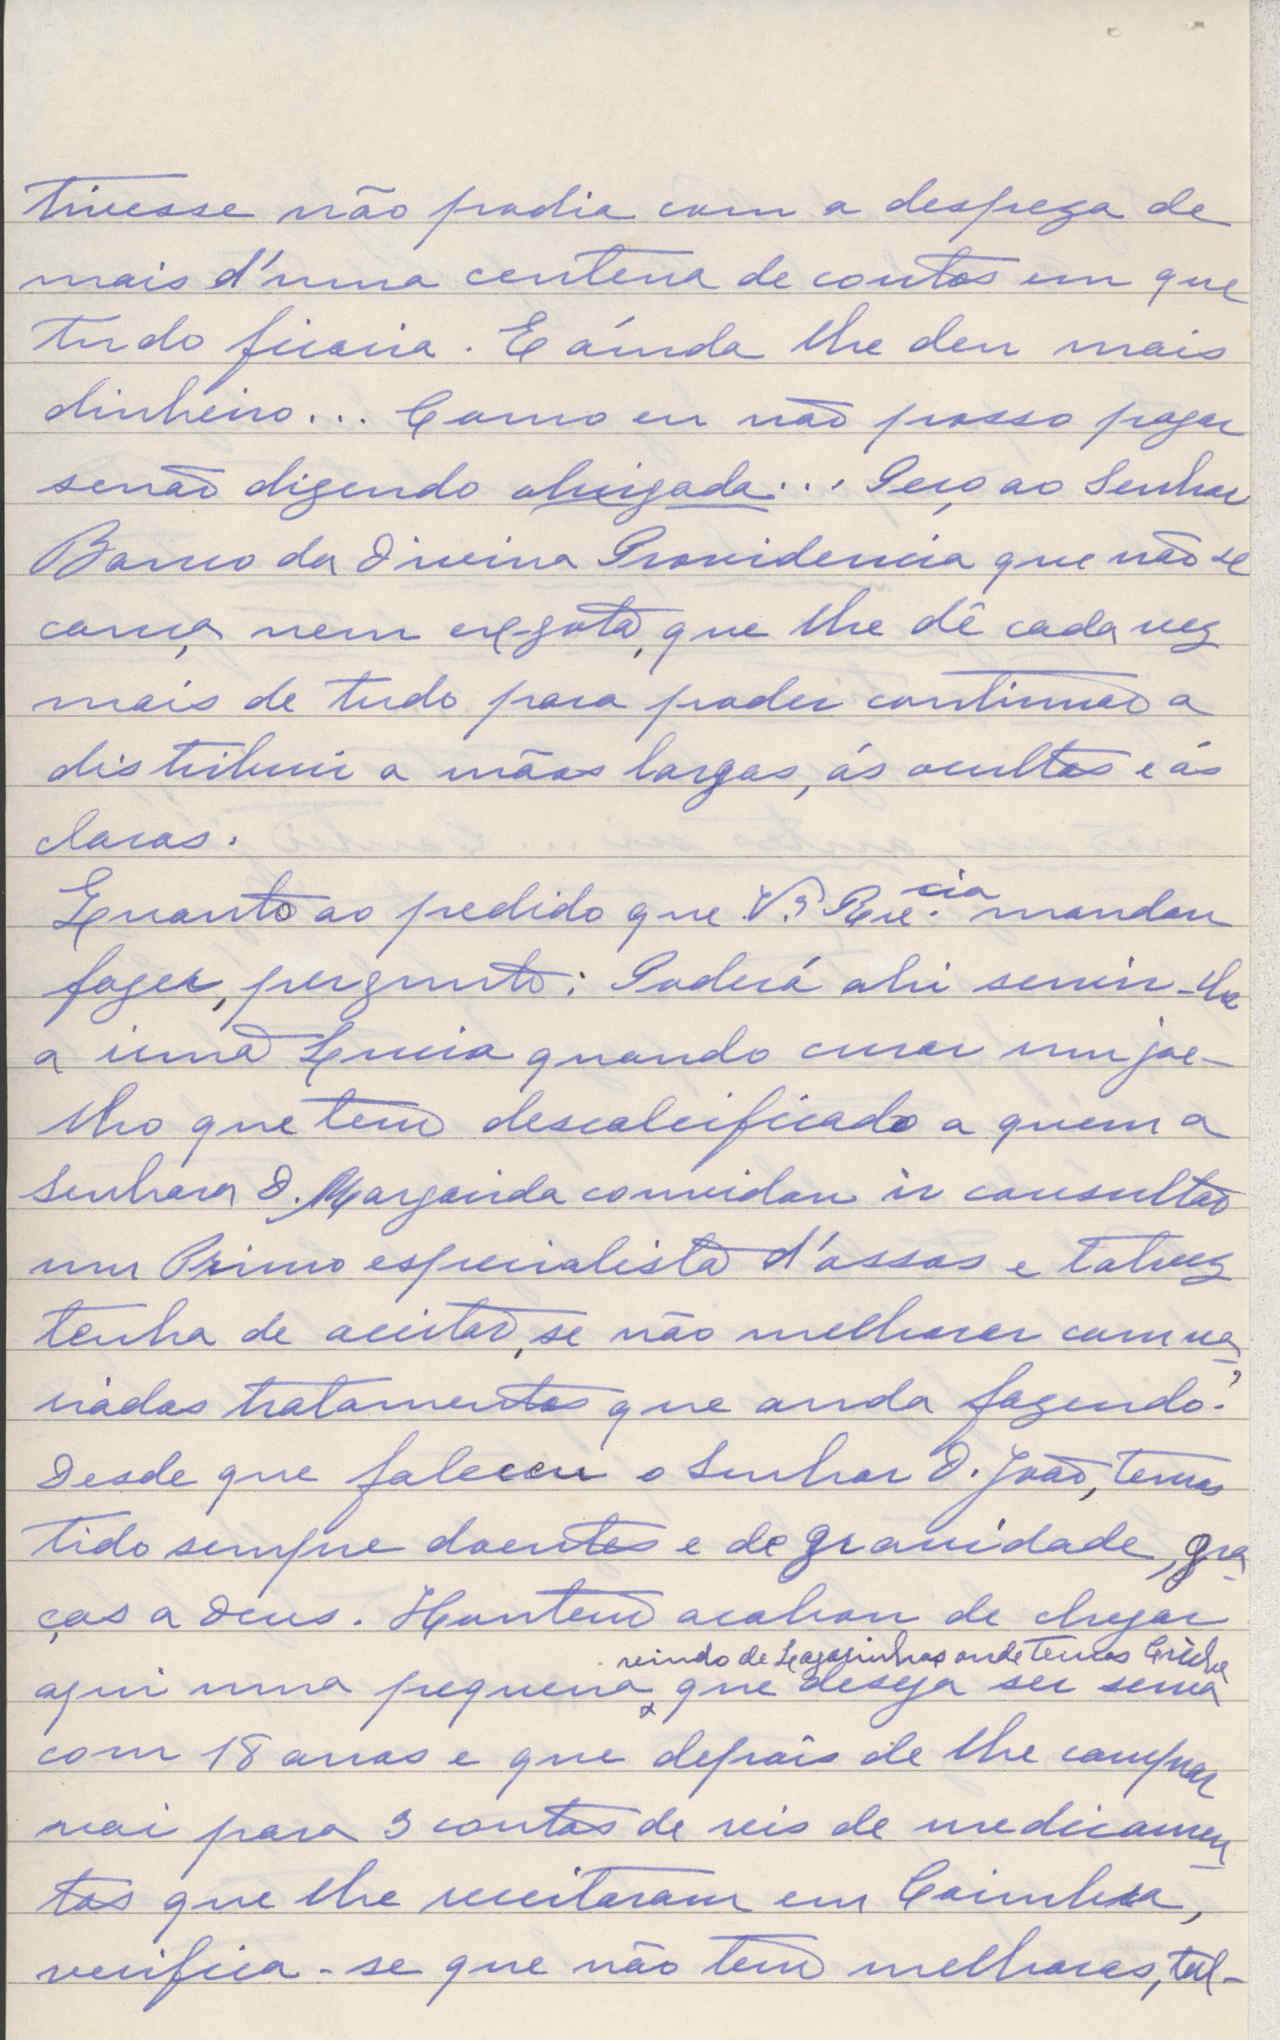 tivesse não podia com a despeza de
mais d'uma centena de contos em que
tudo ficaria. E aínda lhe deu mais
dinheiro... Como eu não posso pagar
senão dizendo obrigada... Peço ao Senhor
Banco da Divina Providencia que não se
cança, nem exgota, que lhe dê cada vez
mais de tudo para poder continuar a
distribuir a mãos largas, ás ocultas e ás
claras.
Quanto ao pedido que V.ª Rve.cia mandou
fazer, pergunto: Poderá ahi servir-lhe
a irmã Lucia quando curar um joe-
lho que tem descalcificado a quem a
Senhora D. Margarida convidou ir consultar
um Primo especialista d'ossos e talvez
tenha de aceitar, se não melhorar com va-
riados tratamentos que anda fazendo.
Desde que faleceu o Senhor D. João, temos
tido sempre doentes e de gravidade, gra-
ças a Deus. Hontem acabou de chegar
vindo de Lagarinhos onde temos Créche
aqui uma pequena que deseja ser serva
com 18 anos e que depois de lhe comprar
vai para 3 contos de reis de medicamen-
tos que lhe receitaram em Coimbra,
verifica-se que não tem melhoras, tal-